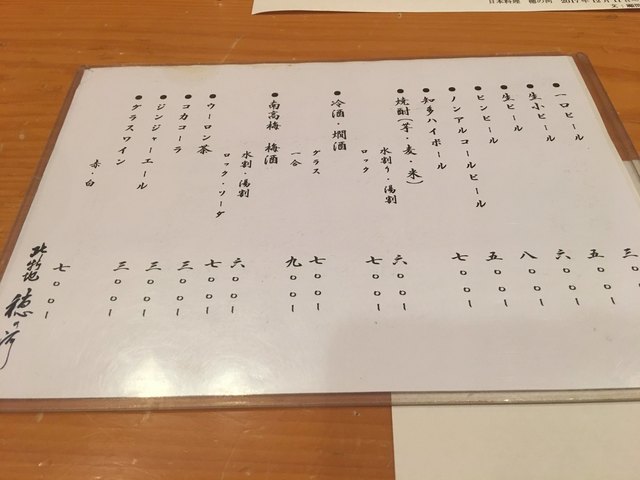 日本料理 穂の河 2017年12月11日
●一口ビール 三〇〇ー
●生小ビール 五〇〇ー
●生ビール 六〇〇ー
●ビンビール 八〇〇ー
●ノンアルコールビール 五〇〇ー
●知多ハイボール 七〇〇ー
●焼酎(芋・麦・米)
水割り・湯割 六〇〇ー
ロック 七〇〇ー
●冷酒・燗酒
グラス 七〇〇ー
一合 九〇〇ー
●南高梅 梅酒
水割・湯割 六〇〇ー
ロック・ソーダ 七〇〇ー
●ウーロン茶 三〇〇ー
●コカコーラ 三〇〇ー
●ジンジャーエール 三〇〇ー
●グラスワイン
赤・白 七〇〇ー
北新地 穂の河